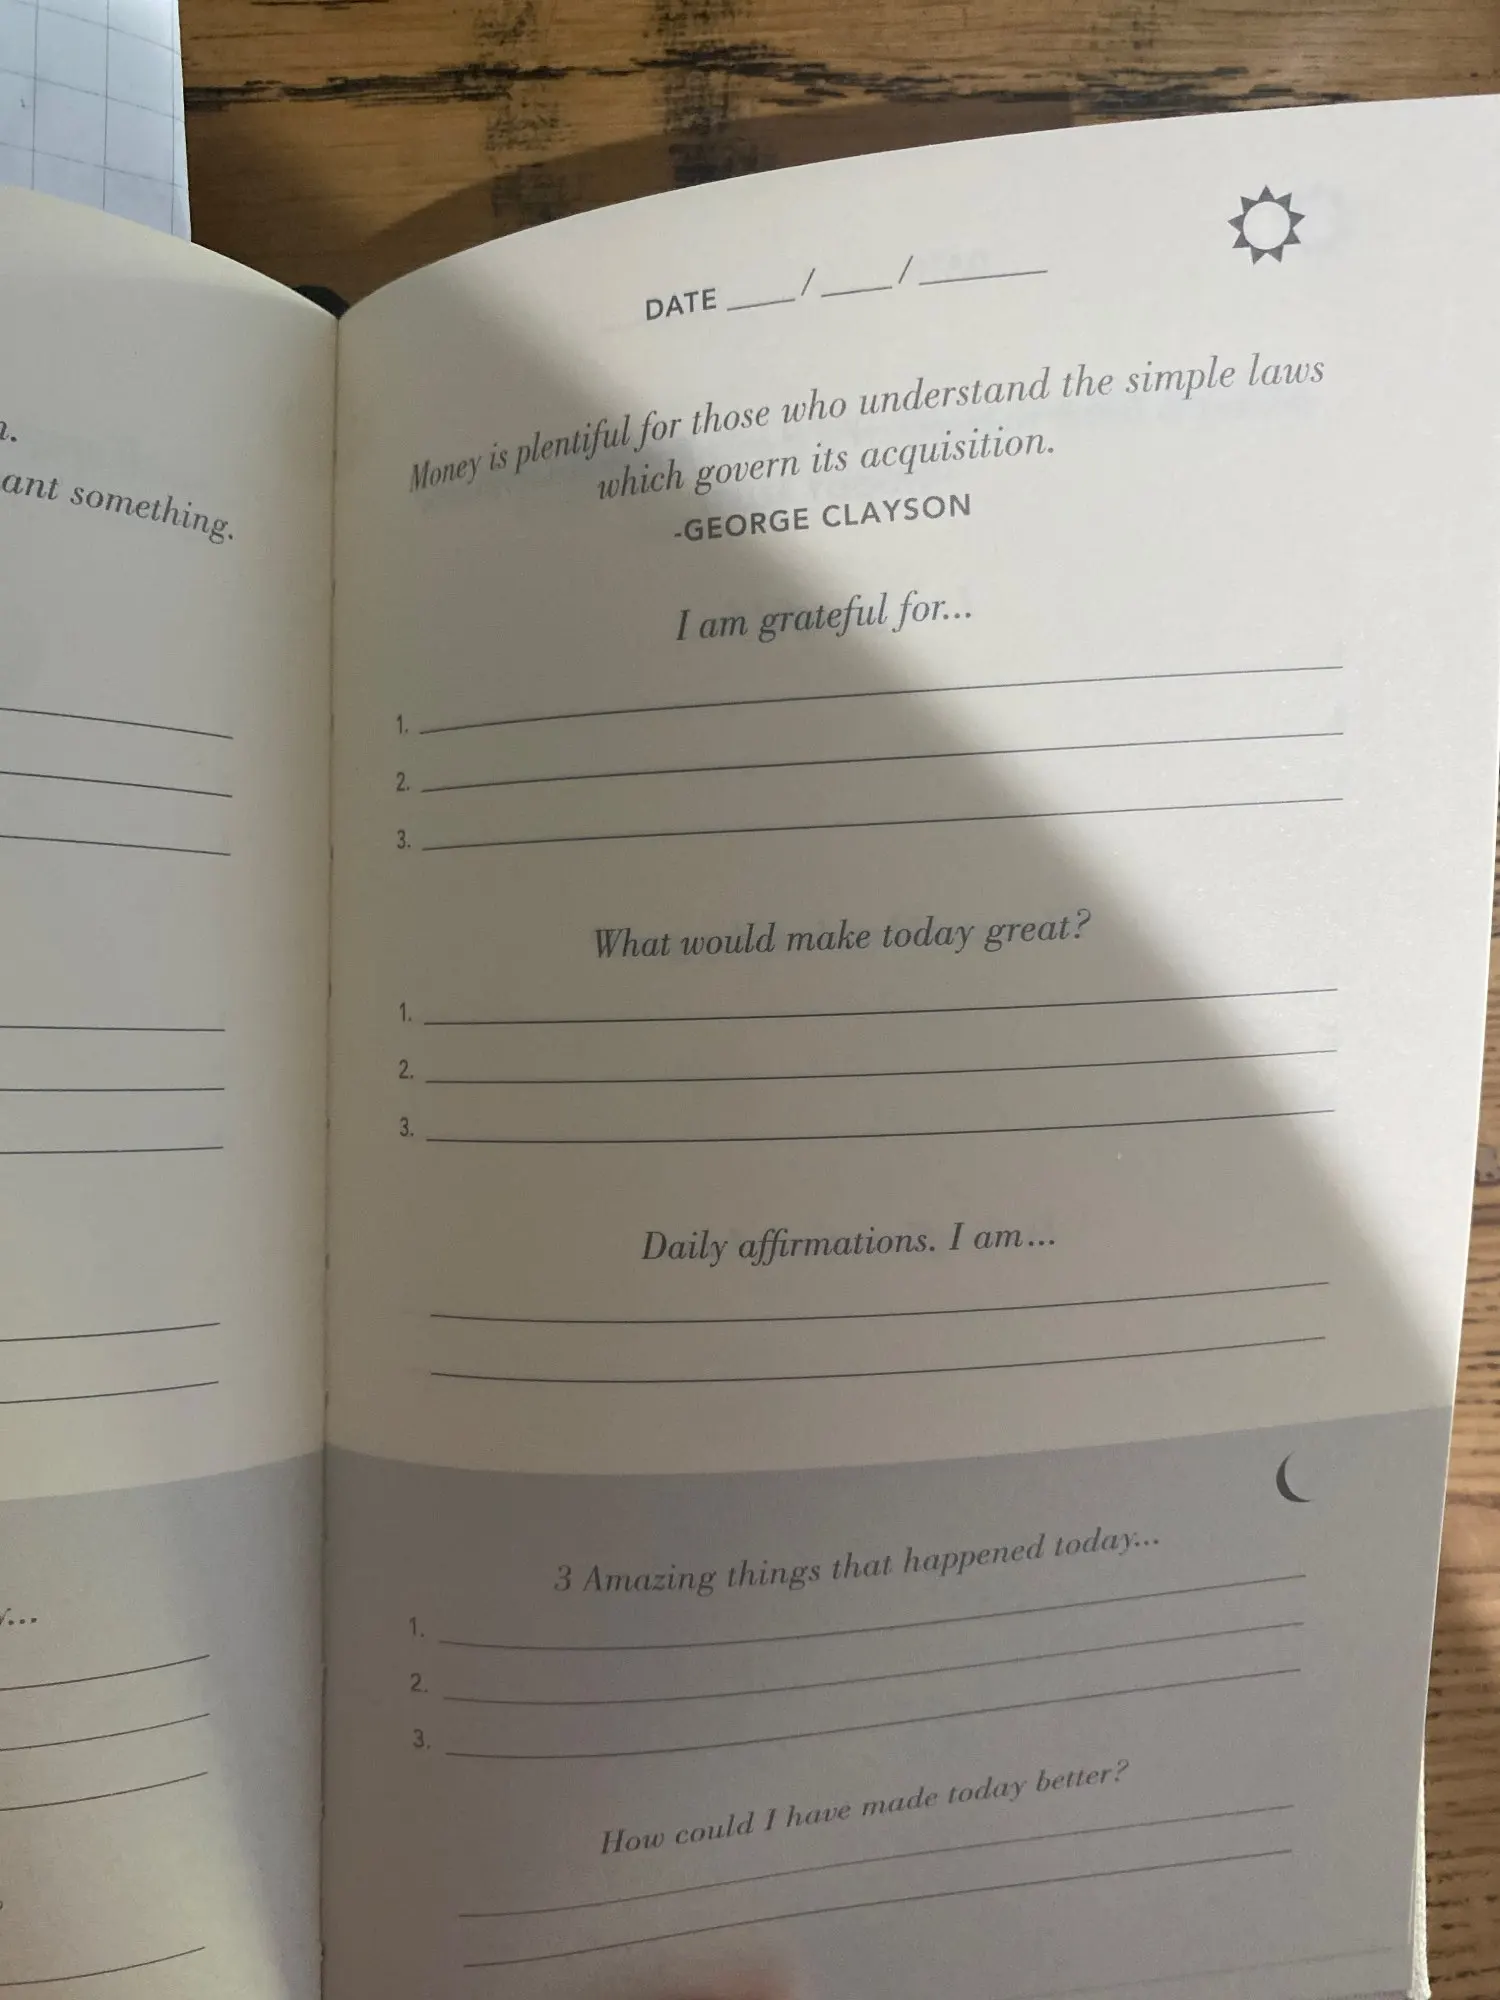 ant something.
DATE ___/___/_____
Money is plentiful for those who understand the simple laws
which govern its acquisition.
-GEORGE CLAYSON
I am grateful for...
1.
2.
3.
What would make today great?
1.
2.
3.
Daily affirmations. I am...
3 Amazing things that happened today...
1.
2.
3.
How could I have made today better?